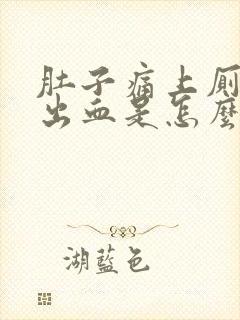 肚子痛上厕
出血是怎麼
湖藍色